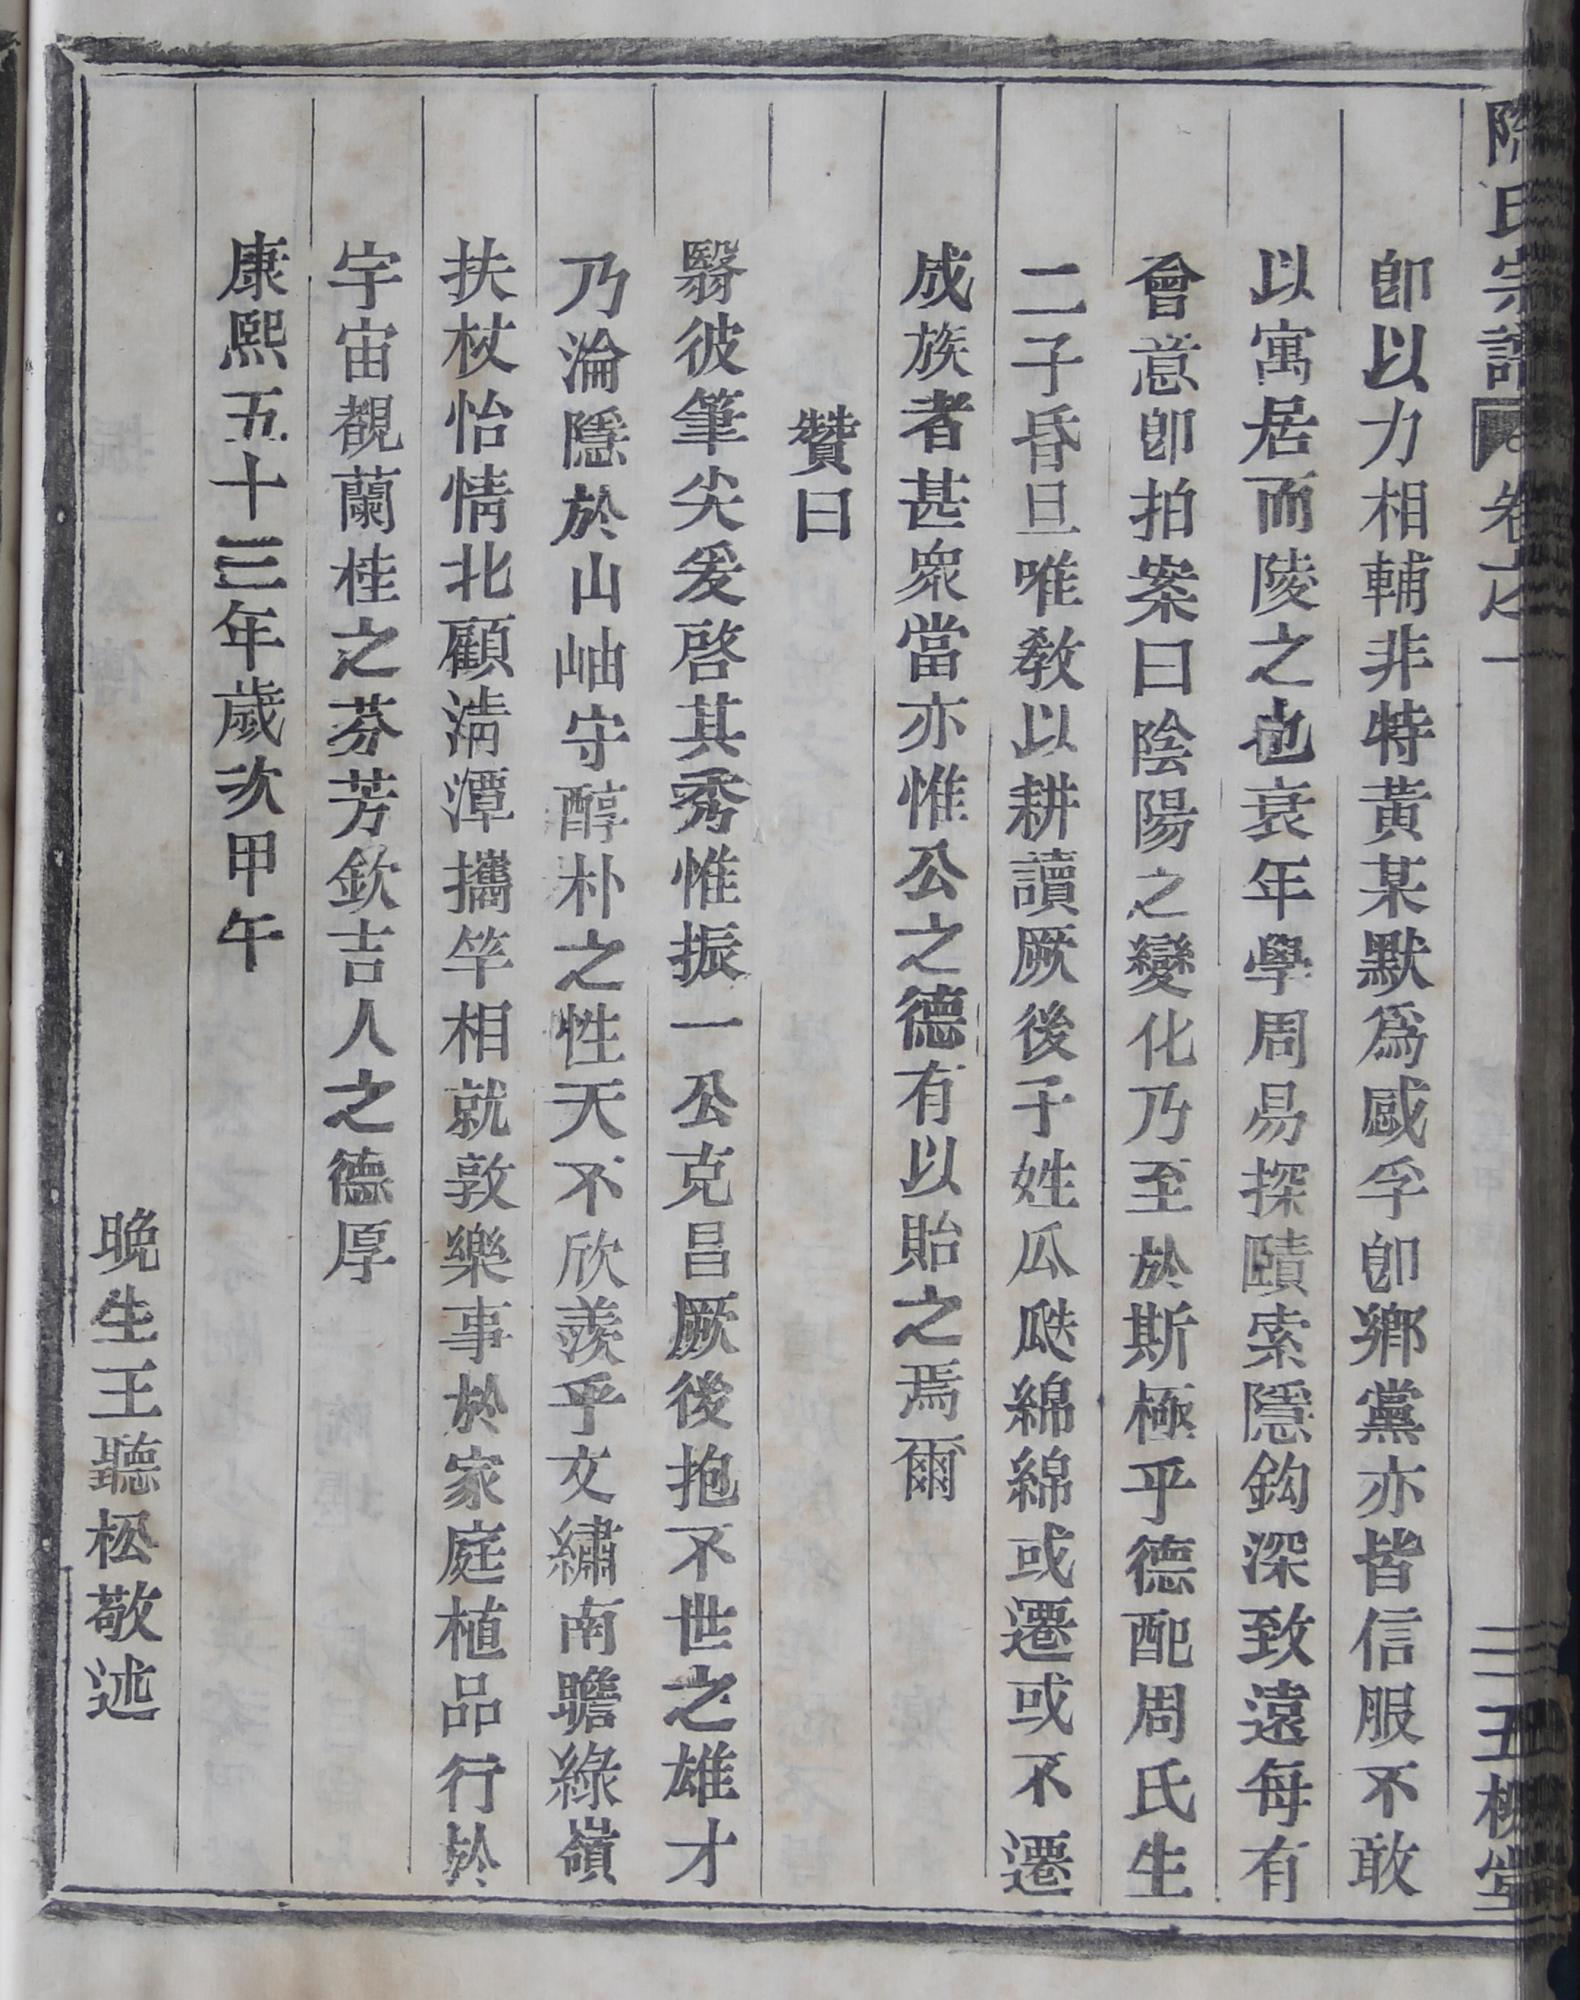 氏宗譜 卷之一 三 五柳堂
卽以力相輔非特黃某默爲感孚卽鄉黨亦皆信服不敢
以寓居而陵之也衰年學周易探賾索隱鈎深致遠每有
會意卽拍案曰陰陽之變化乃至於斯極乎德配周氏生
二子昏旦唯敎以耕讀厥後子姓瓜瓞綿綿或遷或不遷
成族者甚眾當亦惟公之德有以貽之焉爾
贊曰
翳彼筆尖爰啓其秀惟振一公克昌厥後抱不世之雄才
乃淪隱於山岫守醇朴之性天不欣羨乎文繡南瞻綠嶺
扶杖怡情北顧淸潭攜竿相就敦樂事於家庭植品行於
宇宙覩蘭桂之芬芳欽吉人之德厚
康熙五十三年歲次甲午
晚生王聽松敬述